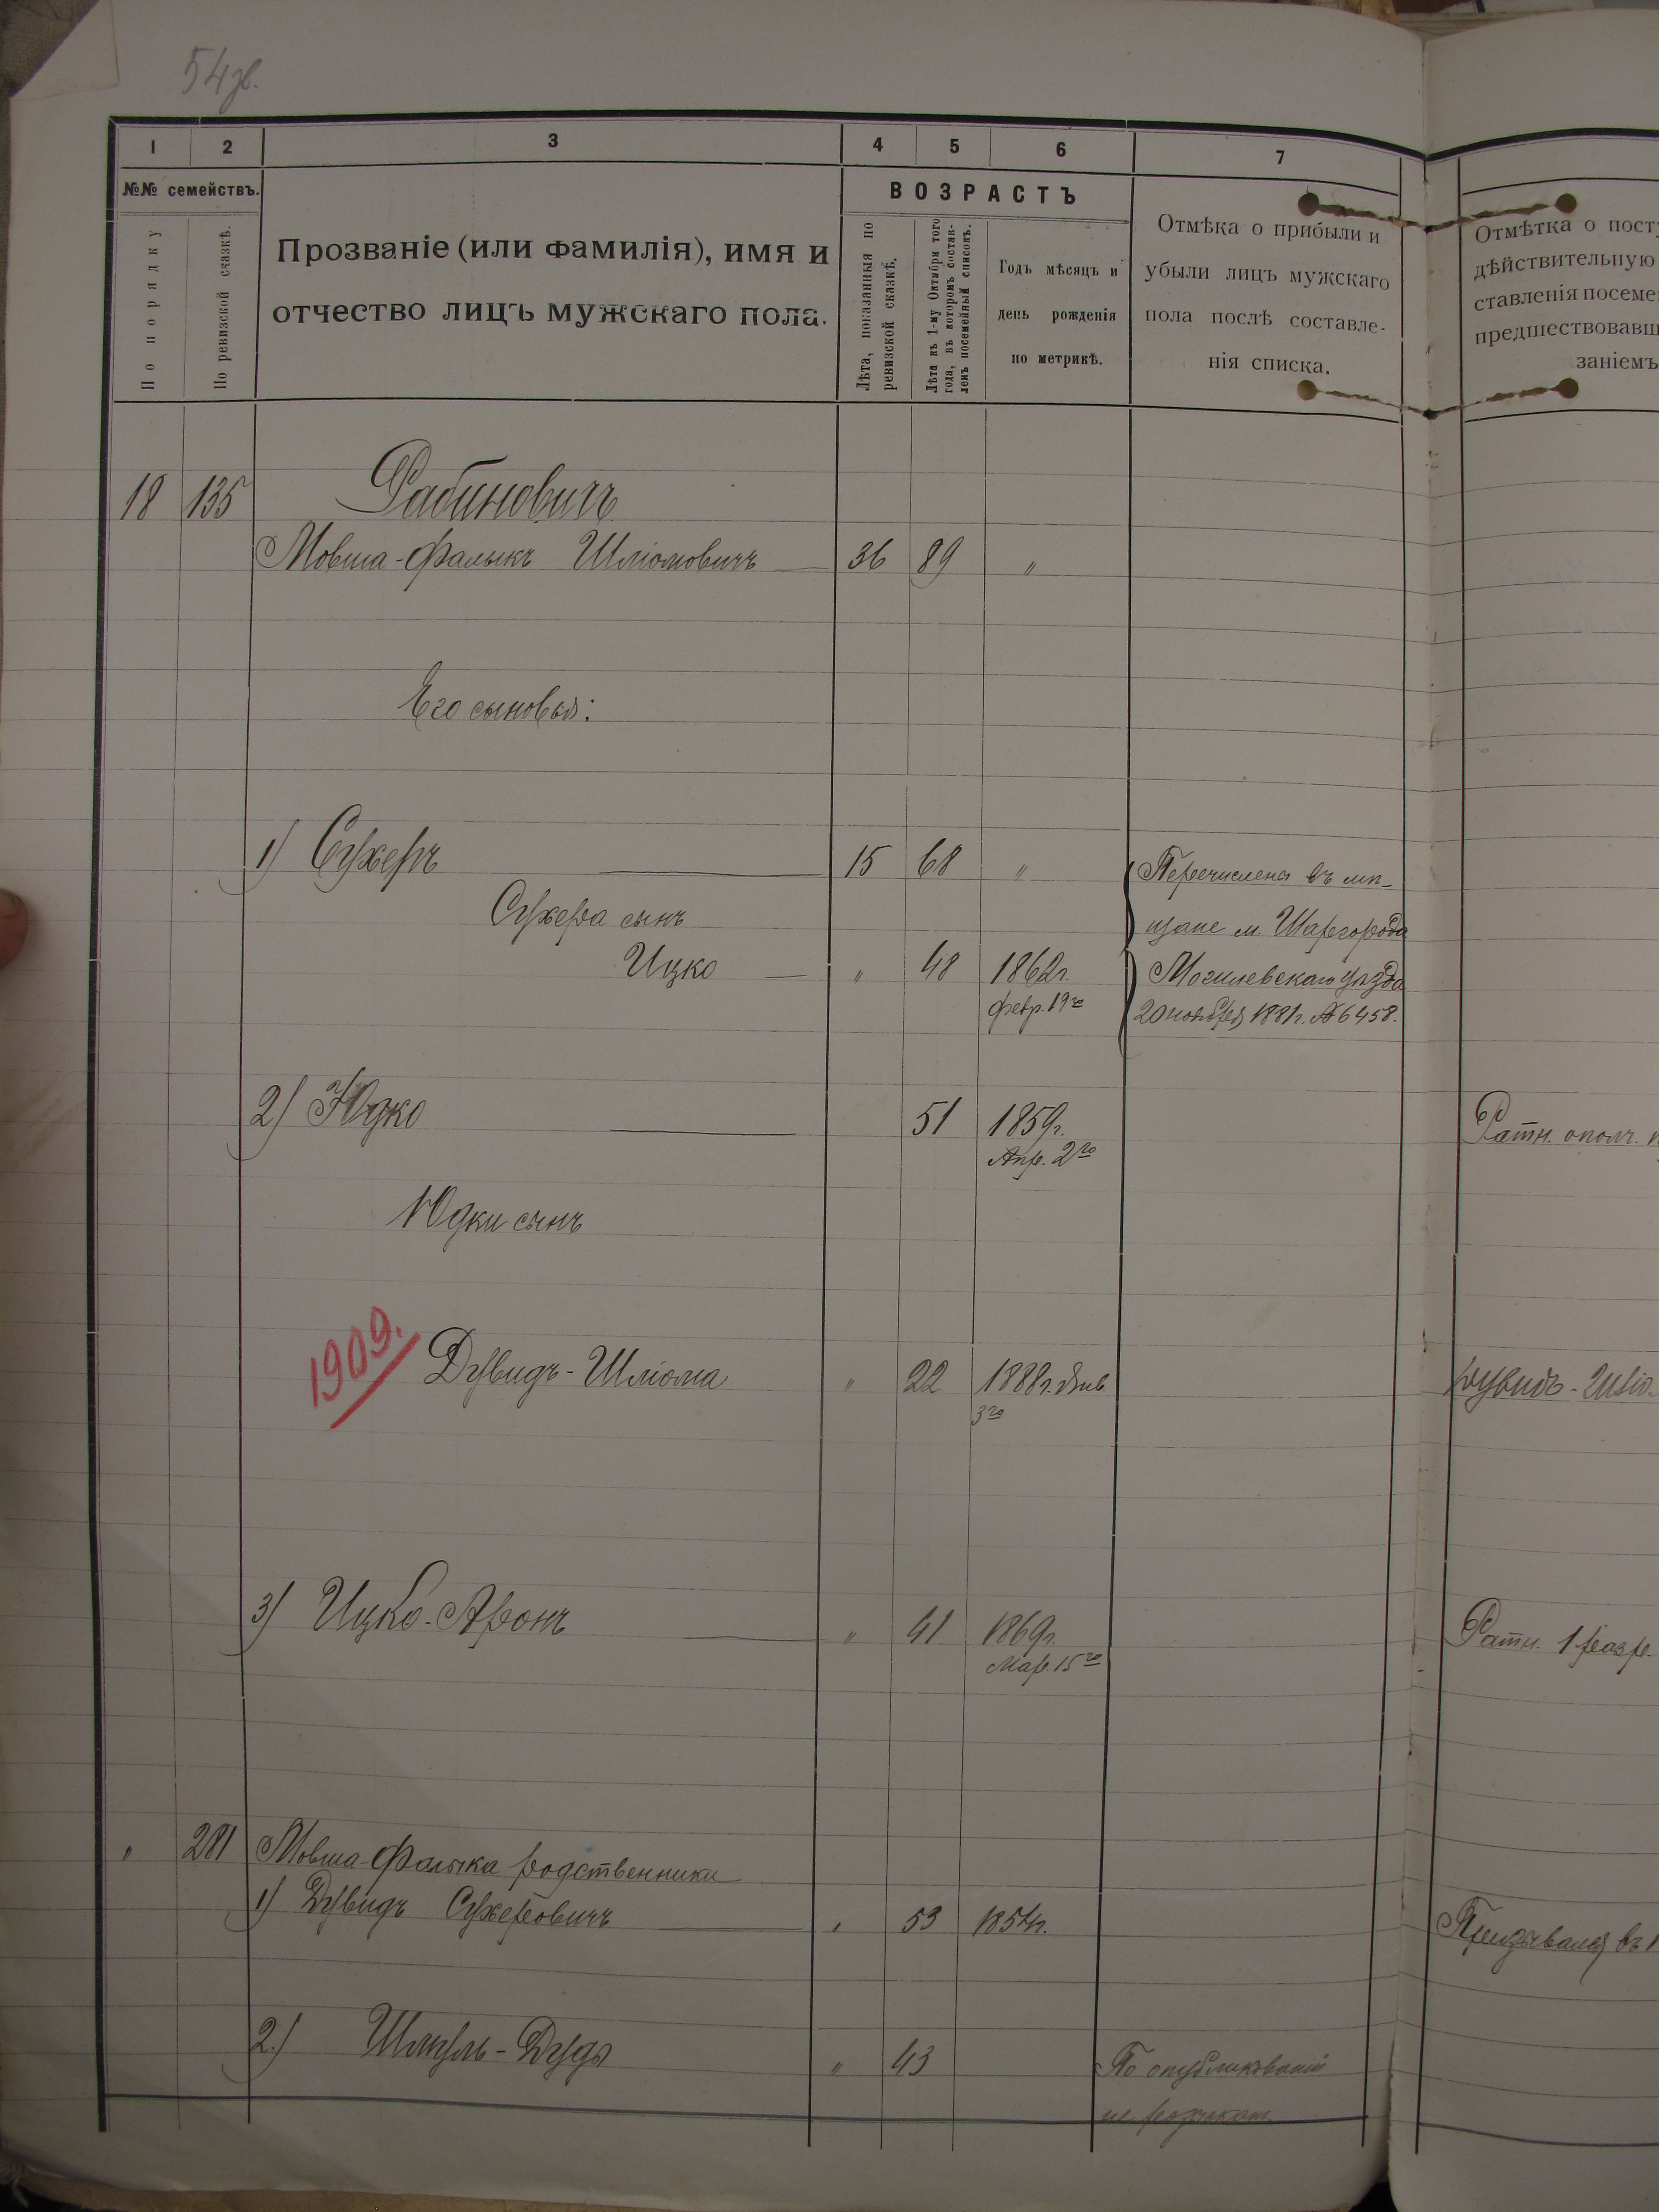 54зв.
1 2 3 4 5 6 7
№№ семействъ.
По порядку
По ревизской сказкѣ.
Прозваніе (или фамилія), имя и
отчество лицъ мужскаго пола.
ВОЗРАСТЪ
Лѣта, показанныя по
ревизской сказкѣ.
Лѣта къ 1-му Октября того
года, въ которомъ состав-
ленъ посемейный списокъ.
Годъ мѣсяцъ и
день рожденія
по метрикѣ.
Отмѣка о прибыли и
убыли лицъ мужскаго
пола послѣ составле-
нія списка.
Отмѣтка о пост
дѣйствительную
ставленія посеме
предшествовавш
заніемъ
18 135 Рабиновичъ
Мовша-Фалыкъ Шліомовичъ 36 89 "
Его сыновья:
1) Сухеръ 15 68 " Перечислены въ мѣ-
Сухера сынъ щане м. Шаргорода
Ицко " 48 1862г. Могилевскаго уѣзда
февр. 19го 20 ноября 1881г. № 6458.
2) Юдко 51 1859г. Ратн. ополч.
Апр. 2го
Юдки сынъ
1909. Дувидъ-Шліома " 22 1888г. Янв. Дувидъ-Шліо-
3го
3) Ицко-Аронъ " 41 1869г. Ратн. 1 разр.
Мар. 15го
" 281 Мовша-Фалыка родственники
1) Дувидъ Сухеровичъ " 53 1854г. Призывался въ 1
2.) Шмуль-Дудя " 43 По опубликованіи
не розыскан